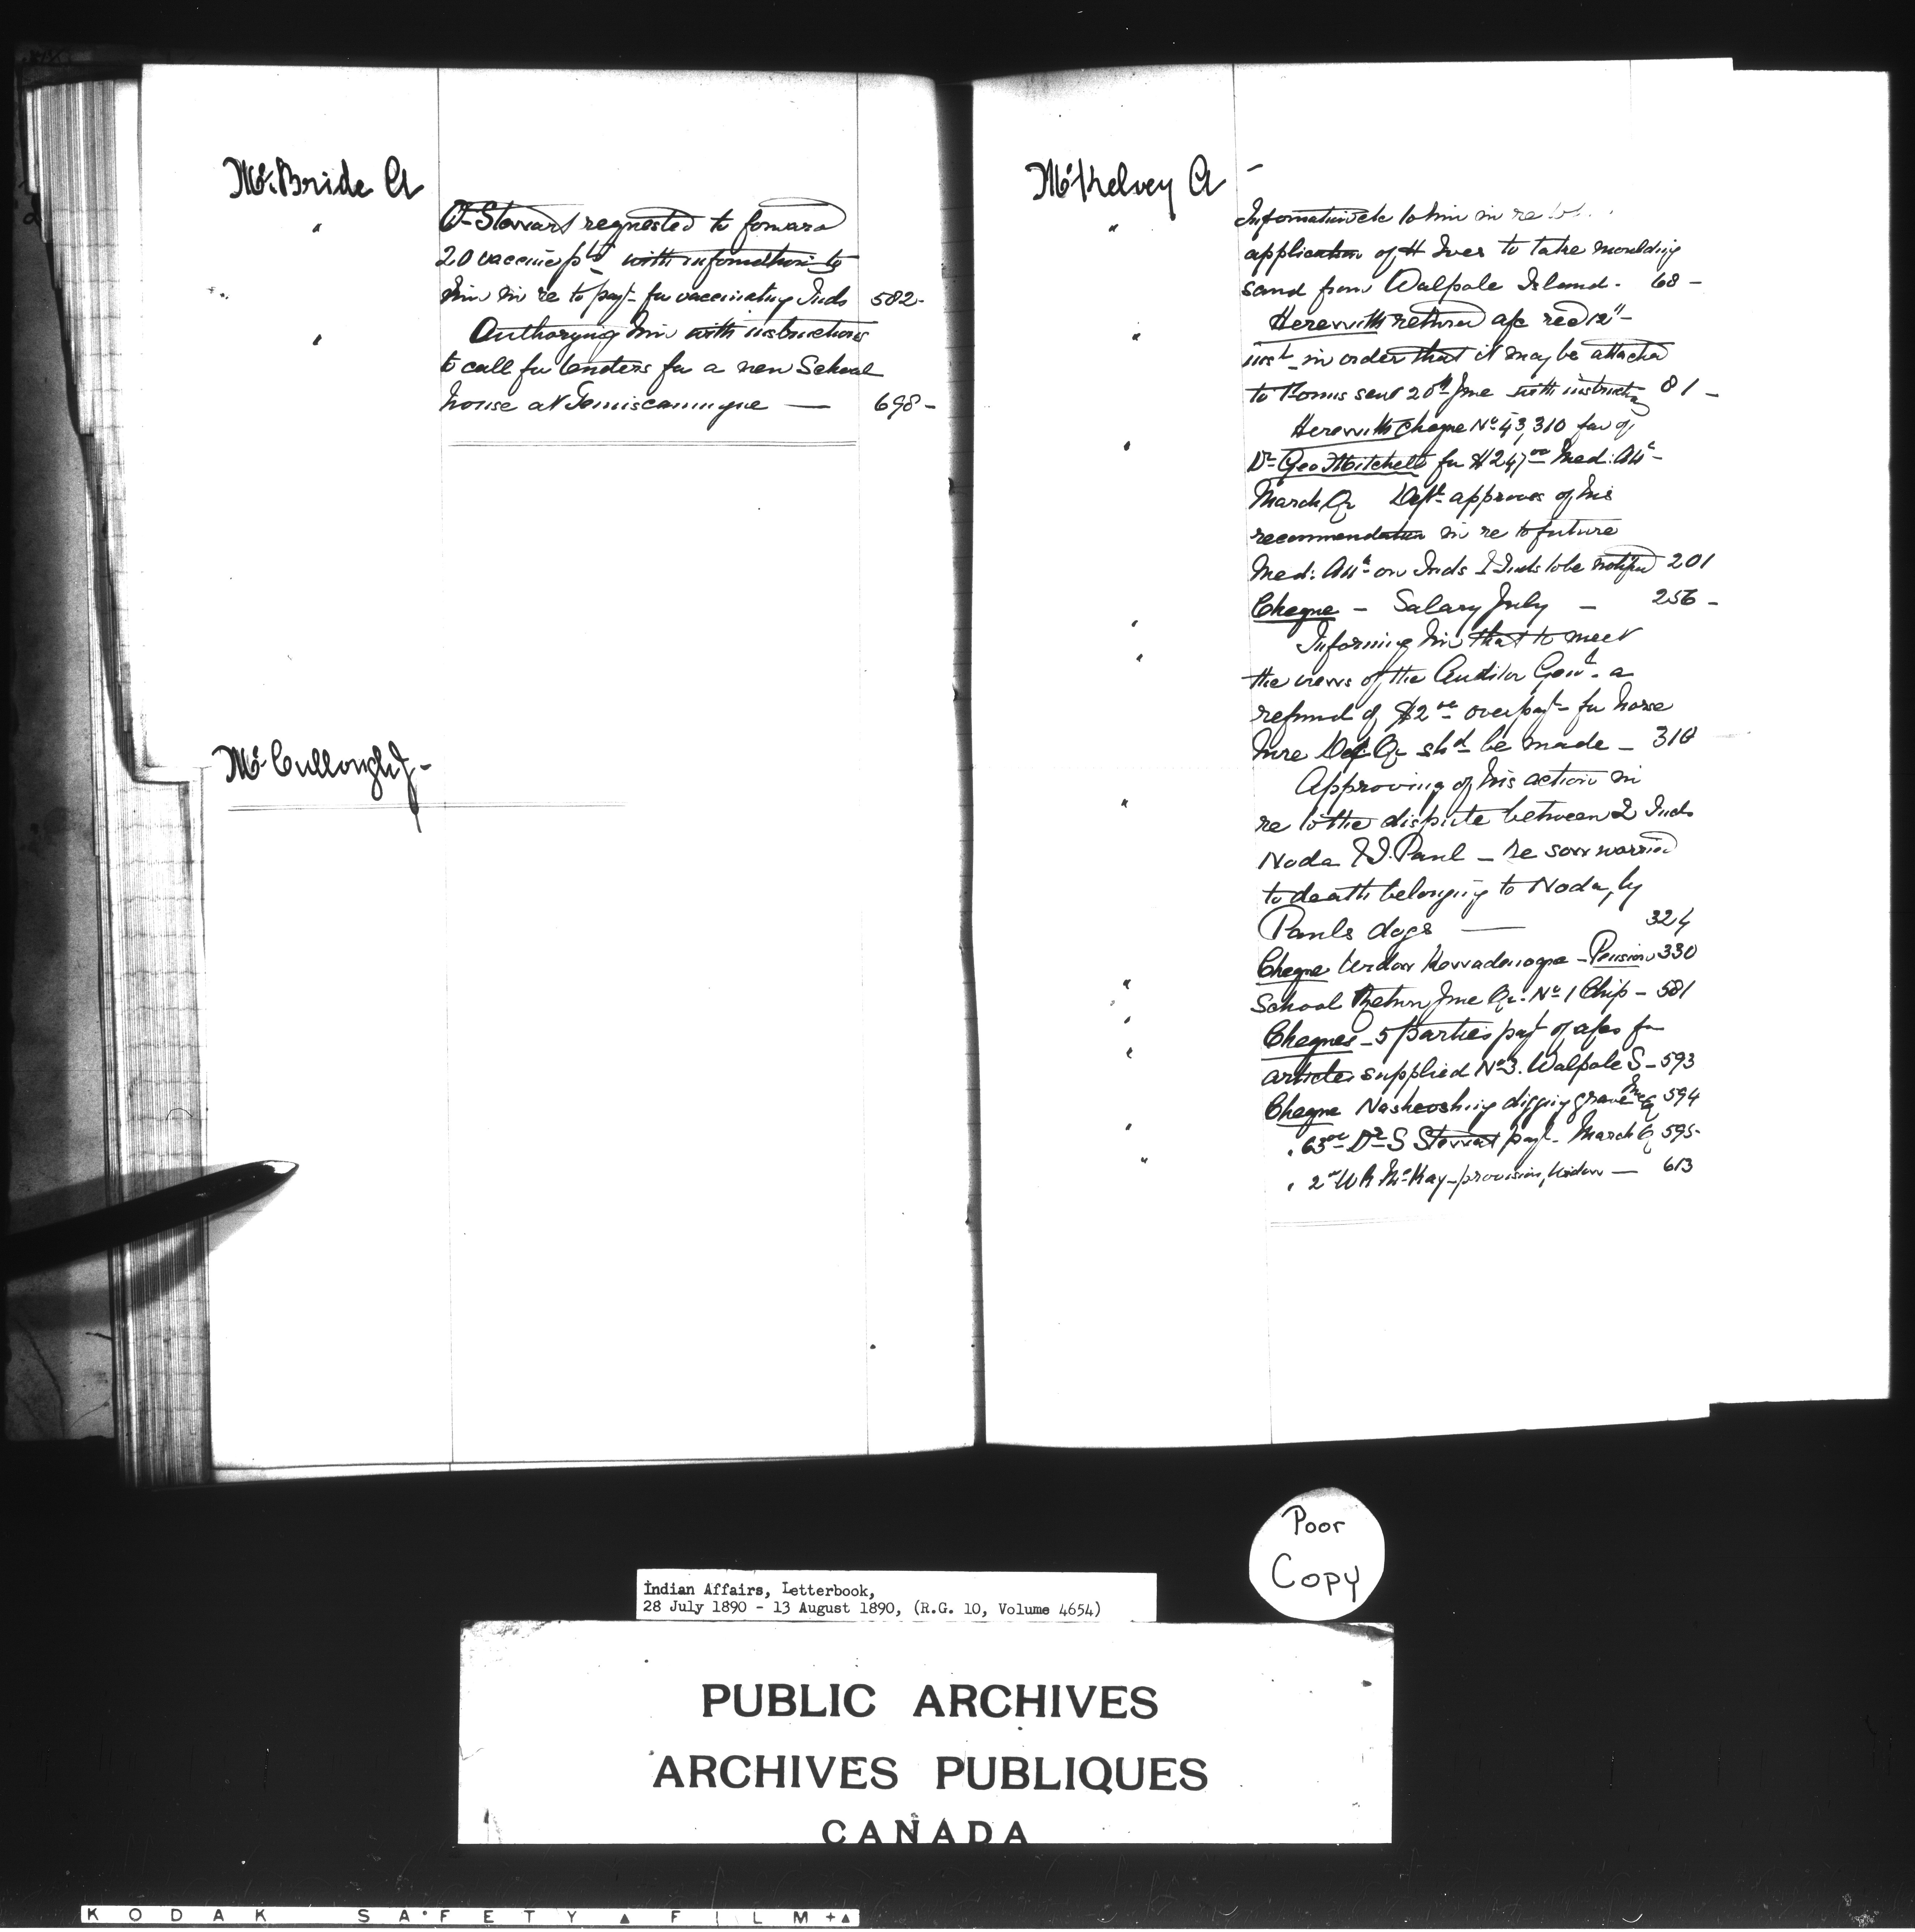 McBride A
" O. Stewart requested to forward
20 vaccine pts with information to
him in re to payt for vaccinating Inds 582-
" Authorizing him with instructions
to call for tenders for a new School
house at Temiscamingue — 698-
McCullough J-
McKelvey A -
" Information etc to him in re to
application of H Ives to take moulding
sand from Walpole Island. 68 -
" Herewith return a/c recd 12"
inst in order that it may be attached
to forms sent 20th June with instructns 81 -
" Herewith Cheque No 43,310 fav of
Dr Geo Mitchell for $24,00 Med: Att-
March Qr Dept approves of his
recommendation in re to future
Med: Att on Inds & Inds to be notified 201
" Cheque - Salary July - 256 -
" Informing him that to meet
the views of the Auditor Genl a
refund of $2 00 overpayt for horse
hire Dec Qr shd be made - 316
" Approving of his action in
re to the dispute between 2 Inds
Noda & J. Paul - re sow worried
to death belonging to Noda, by
Pauls dogs — 324
" Cheque Widow Kewadenogue - Pension 330
" School Return June Qr. No 1 Chip - 581
" Cheques - 5 parties payt of a/cs for
articles supplied No 3. Walpole S - 593
" Cheque Nasheoshing digging grave 594
" " 63 00 Dr S Stewart payt March Q 595-
" " 2 00 W R McKay - provisions, Widow — 613
Poor
Copy
Indian Affairs, Letterbook,
28 July 1890 - 13 August 1890, (R.G. 10, Volume 4654)
PUBLIC ARCHIVES
ARCHIVES PUBLIQUES
CANADA
KODAK SAFETY FILM